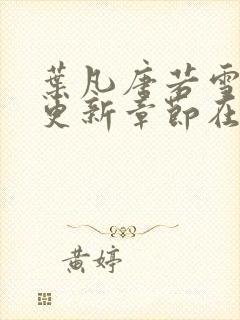 葉凡唐若雪
更新章節在
黄婷